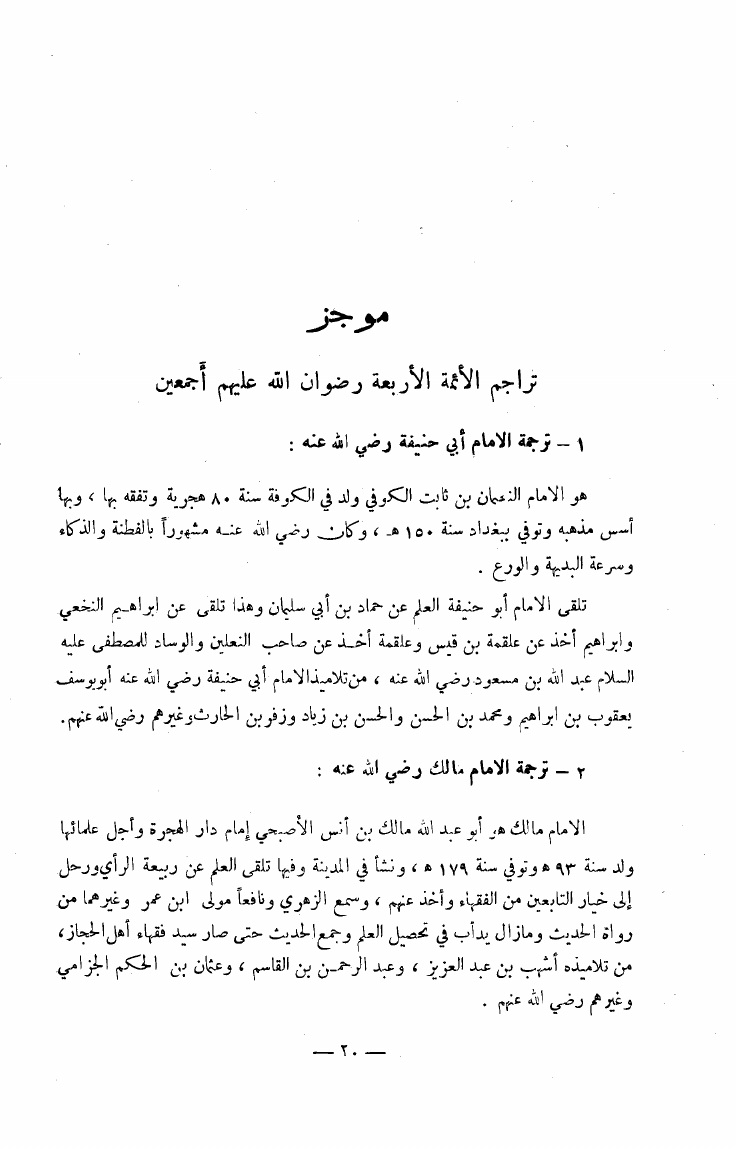 موجز
تراجم الأئمة الأربعة رضوان الله عليهم أجمعين
١ – ترجمة الامام أبي حنيفة رضي الله عنه :
هو الامام النعمان بن ثابت الكوفي ولد في الكوفة سنة ٨٠ هجرية وتفقه بها ، وبها
أسس مذهبه وتوفي ببغداد سنة ١٥٠ هـ ، وكان رضي الله عنه مشهوراً بالفطنة والذكاء
وسرعة البديهة والورع .
تلقى الامام أبو حنيفة العلم عن حماد بن أبي سليمان وهذا تلقى عن ابراهيم النخعي
وابراهيم أخذ عن علقمة بن قيس وعلقمة أخذ عن صاحب النعلين والوساد للمصطفى عليه
السلام عبد الله بن مسعود رضي الله عنه ، من تلاميذ الامام أبي حنيفة رضي الله عنه أبو يوسف
يعقوب بن ابراهيم ومحمد بن الحسن والحسن بن زياد وزفر بن الحارث وغيرهم رضي الله عنهم .
٢ – ترجمة الامام مالك رضي الله عنه :
الامام مالك هو أبو عبد الله مالك بن أنس الأصبحي إمام دار الهجرة وأجل علمائها
ولد سنة ٩٣ ه وتوفي سنة ١٧٩ ه ، ونشأ في المدينة وفيها تلقى العلم عن ربيعة الرأي ورحل
إلى خيار التابعين من الفقهاء وأخذ عنهم ، وسمع الزهري ونافعاً مولى ابن عمر وغيرهما من
رواة الحديث ومازال يدأب في تحصيل العلم وجمع الحديث حتى صار سيد فقهاء أهل الحجاز ،
من تلاميذه أشهب بن عبد العزيز ، وعبد الرحمن بن القاسم ، وعثمان بن الحكم الجزامي
وغيرهم رضي الله عنهم .
— ٢٠ —